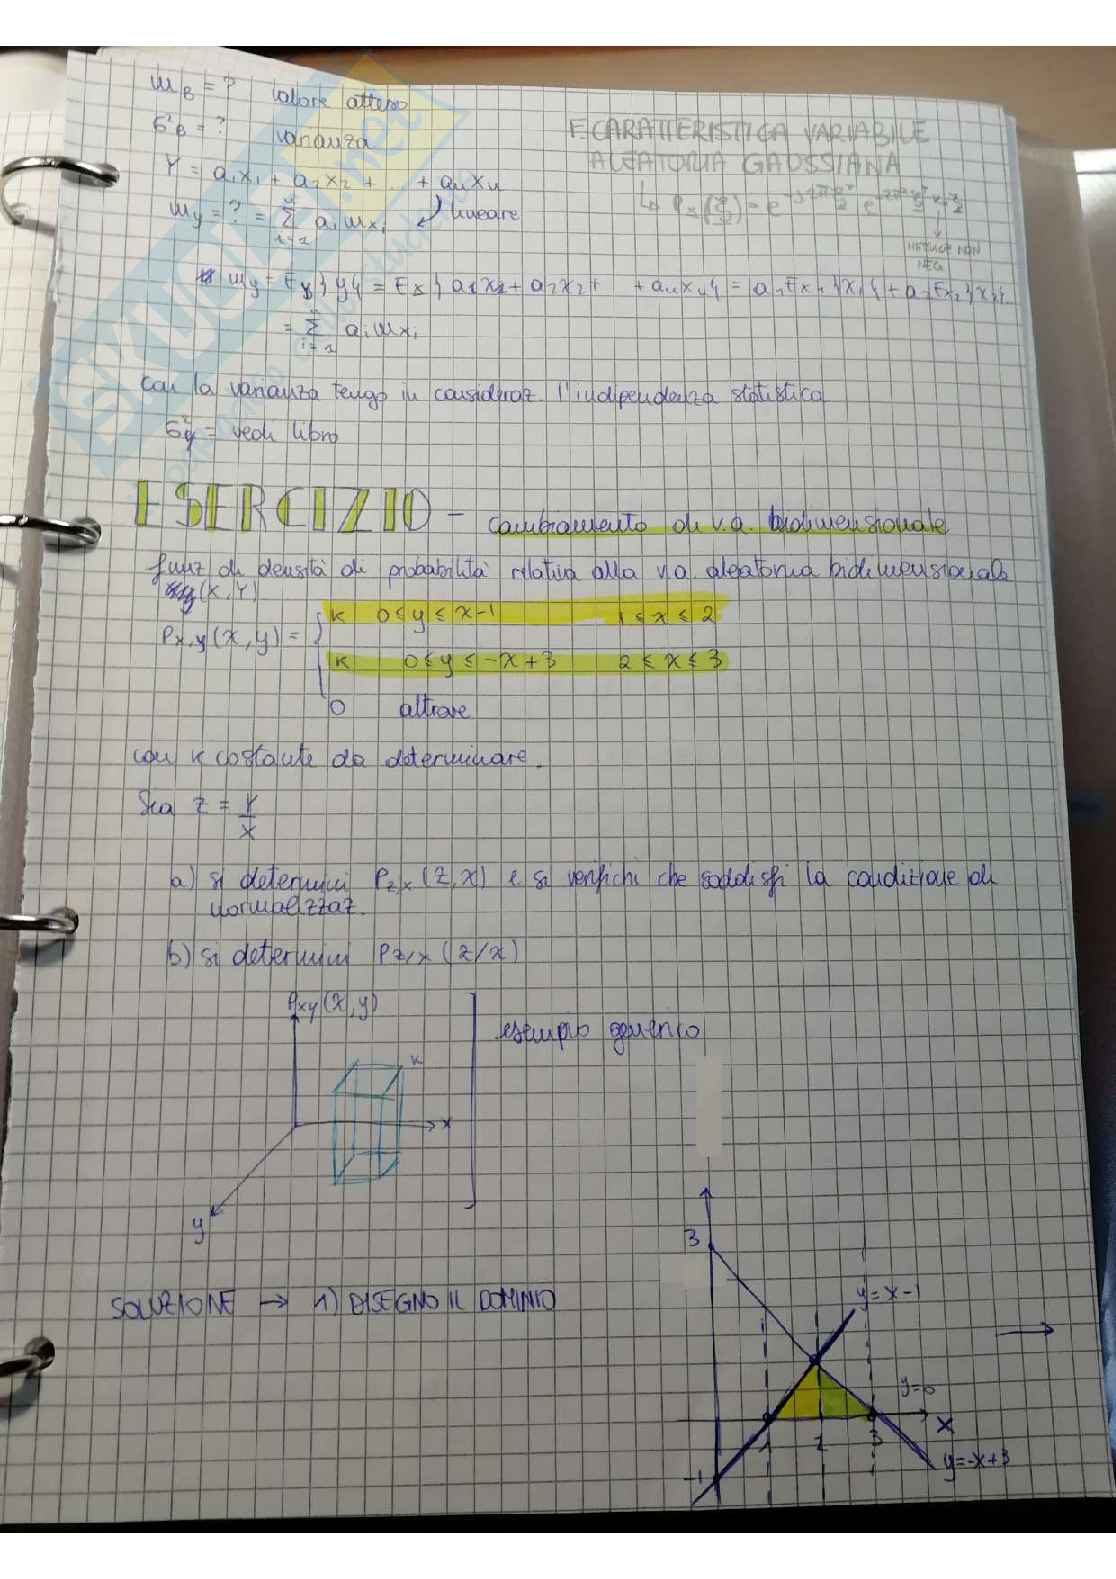 m_B = ? valore atteso
σ²_B = ? varianza
F. CARATTERISTICA VARIABILE
ALEATORIA GAUSSIANA
Y = a₁x₁ + a₂x₂ + ... + aₙxₙ
m_y = ? = Σ aᵢ m_xᵢ lineare
NETURCE NON
NEG.
m_y = E_y{y} = E_x{a₁x₁ + a₂x₂ + + aₙxₙ} = a₁E_x₁{x₁} + a₂E_x₂{x₂}...
= Σ aᵢ m_xᵢ
con la varianza tengo in consideraz. l'indipendenza statistica
σ²_y = vedi libro
ESERCIZIO - cambiamento di v.a. bidimensionale
funz di densità di probabilità relativa alla v.a. aleatoria bidimensionale
(X, Y)
K 0 ≤ y ≤ x-1 1 ≤ x ≤ 2
P_x,y(x, y) =
K 0 ≤ y ≤ -x+3 2 ≤ x ≤ 3
0 altrove
con K costante da determinare.
Sia Z = Y/X
a) si determini P_zx(z, x) e si verifichi che soddisfi la condizione di
normalizzaz.
b) si determini P_z/x(z/x)
P_xy(x, y)
esempio generico
K
x
y
3
SOLUZIONE → 1) DISEGNO IL DOMINIO
y = x-1
y=0
x
1 2 3
y=-x+3
-1